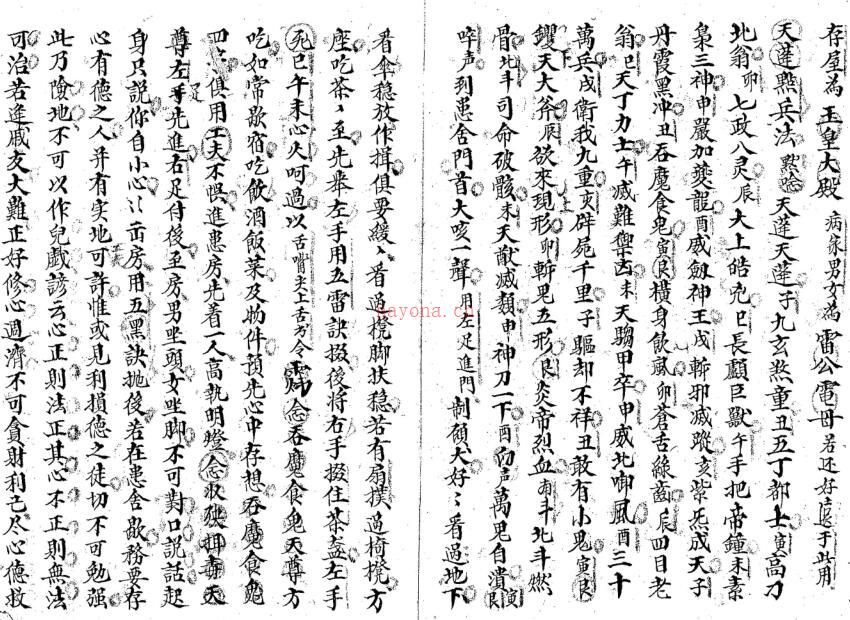 存屋為玉皇大殿 病床男女為雷公電母 若还好 于此用
天蓬㸃兵法 㸃唸 天蓬天蓬子九玄煞童丑五丁都士寅高刀
北翁卯七政八灵辰大上皓兇巳長顱巨獸午手把帝鐘未素
梟三神申嚴加夔龍酉威劍神王戌斬邪滅蹤亥紫炁成天子
丹霞黑冲丑吞魔食鬼寅艮橫身飲風卯蒼舌綠齒辰四目老
翁巳天丁力士午威難禦凶未天騶甲卒申威北啣風酉三十
萬兵戌衛我九重亥辟屍千里子驅却不祥丑敢有小鬼寅艮
钁天大斧辰欲來現形卯斬鬼五形艮炎帝烈血 斗北斗燃
骨北斗司命破骸未天猷滅類申神刀一下酉 声萬鬼自潰寅艮
啐声到患舍門首大咳一聲 用左足進門 制碩大好〻看過地下
看傘稳放作揖俱要緩〻看過櫈脚扶稳若有扇撲過椅櫈方
座吃茶〻至先舉左手用五雷訣掇後將右手掇住茶盞左手
死巳午未心火呵過以舌嘴尖上舌方令 念吞魔食鬼天尊方
吃如常歇宿吃飲酒飯菜及物件預先心中存想吞魔食鬼
四 俱用工夫不惧進患房先着一人高執明燈念収 天
尊左手足先進右足付後至房男坐頭女坐脚不可對口說話起
身只說你自小心〻出房用五黑訣抛後若在患舍歇務要存
心有德之人并有实地可許惟或見利損德之徒切不可勉强
此乃險地不可以作兒戲諺云心正則法正其心不正則無法
可治若逢戚友大難正好修心過濟不可貪財利己尽心德救
nayona.cn